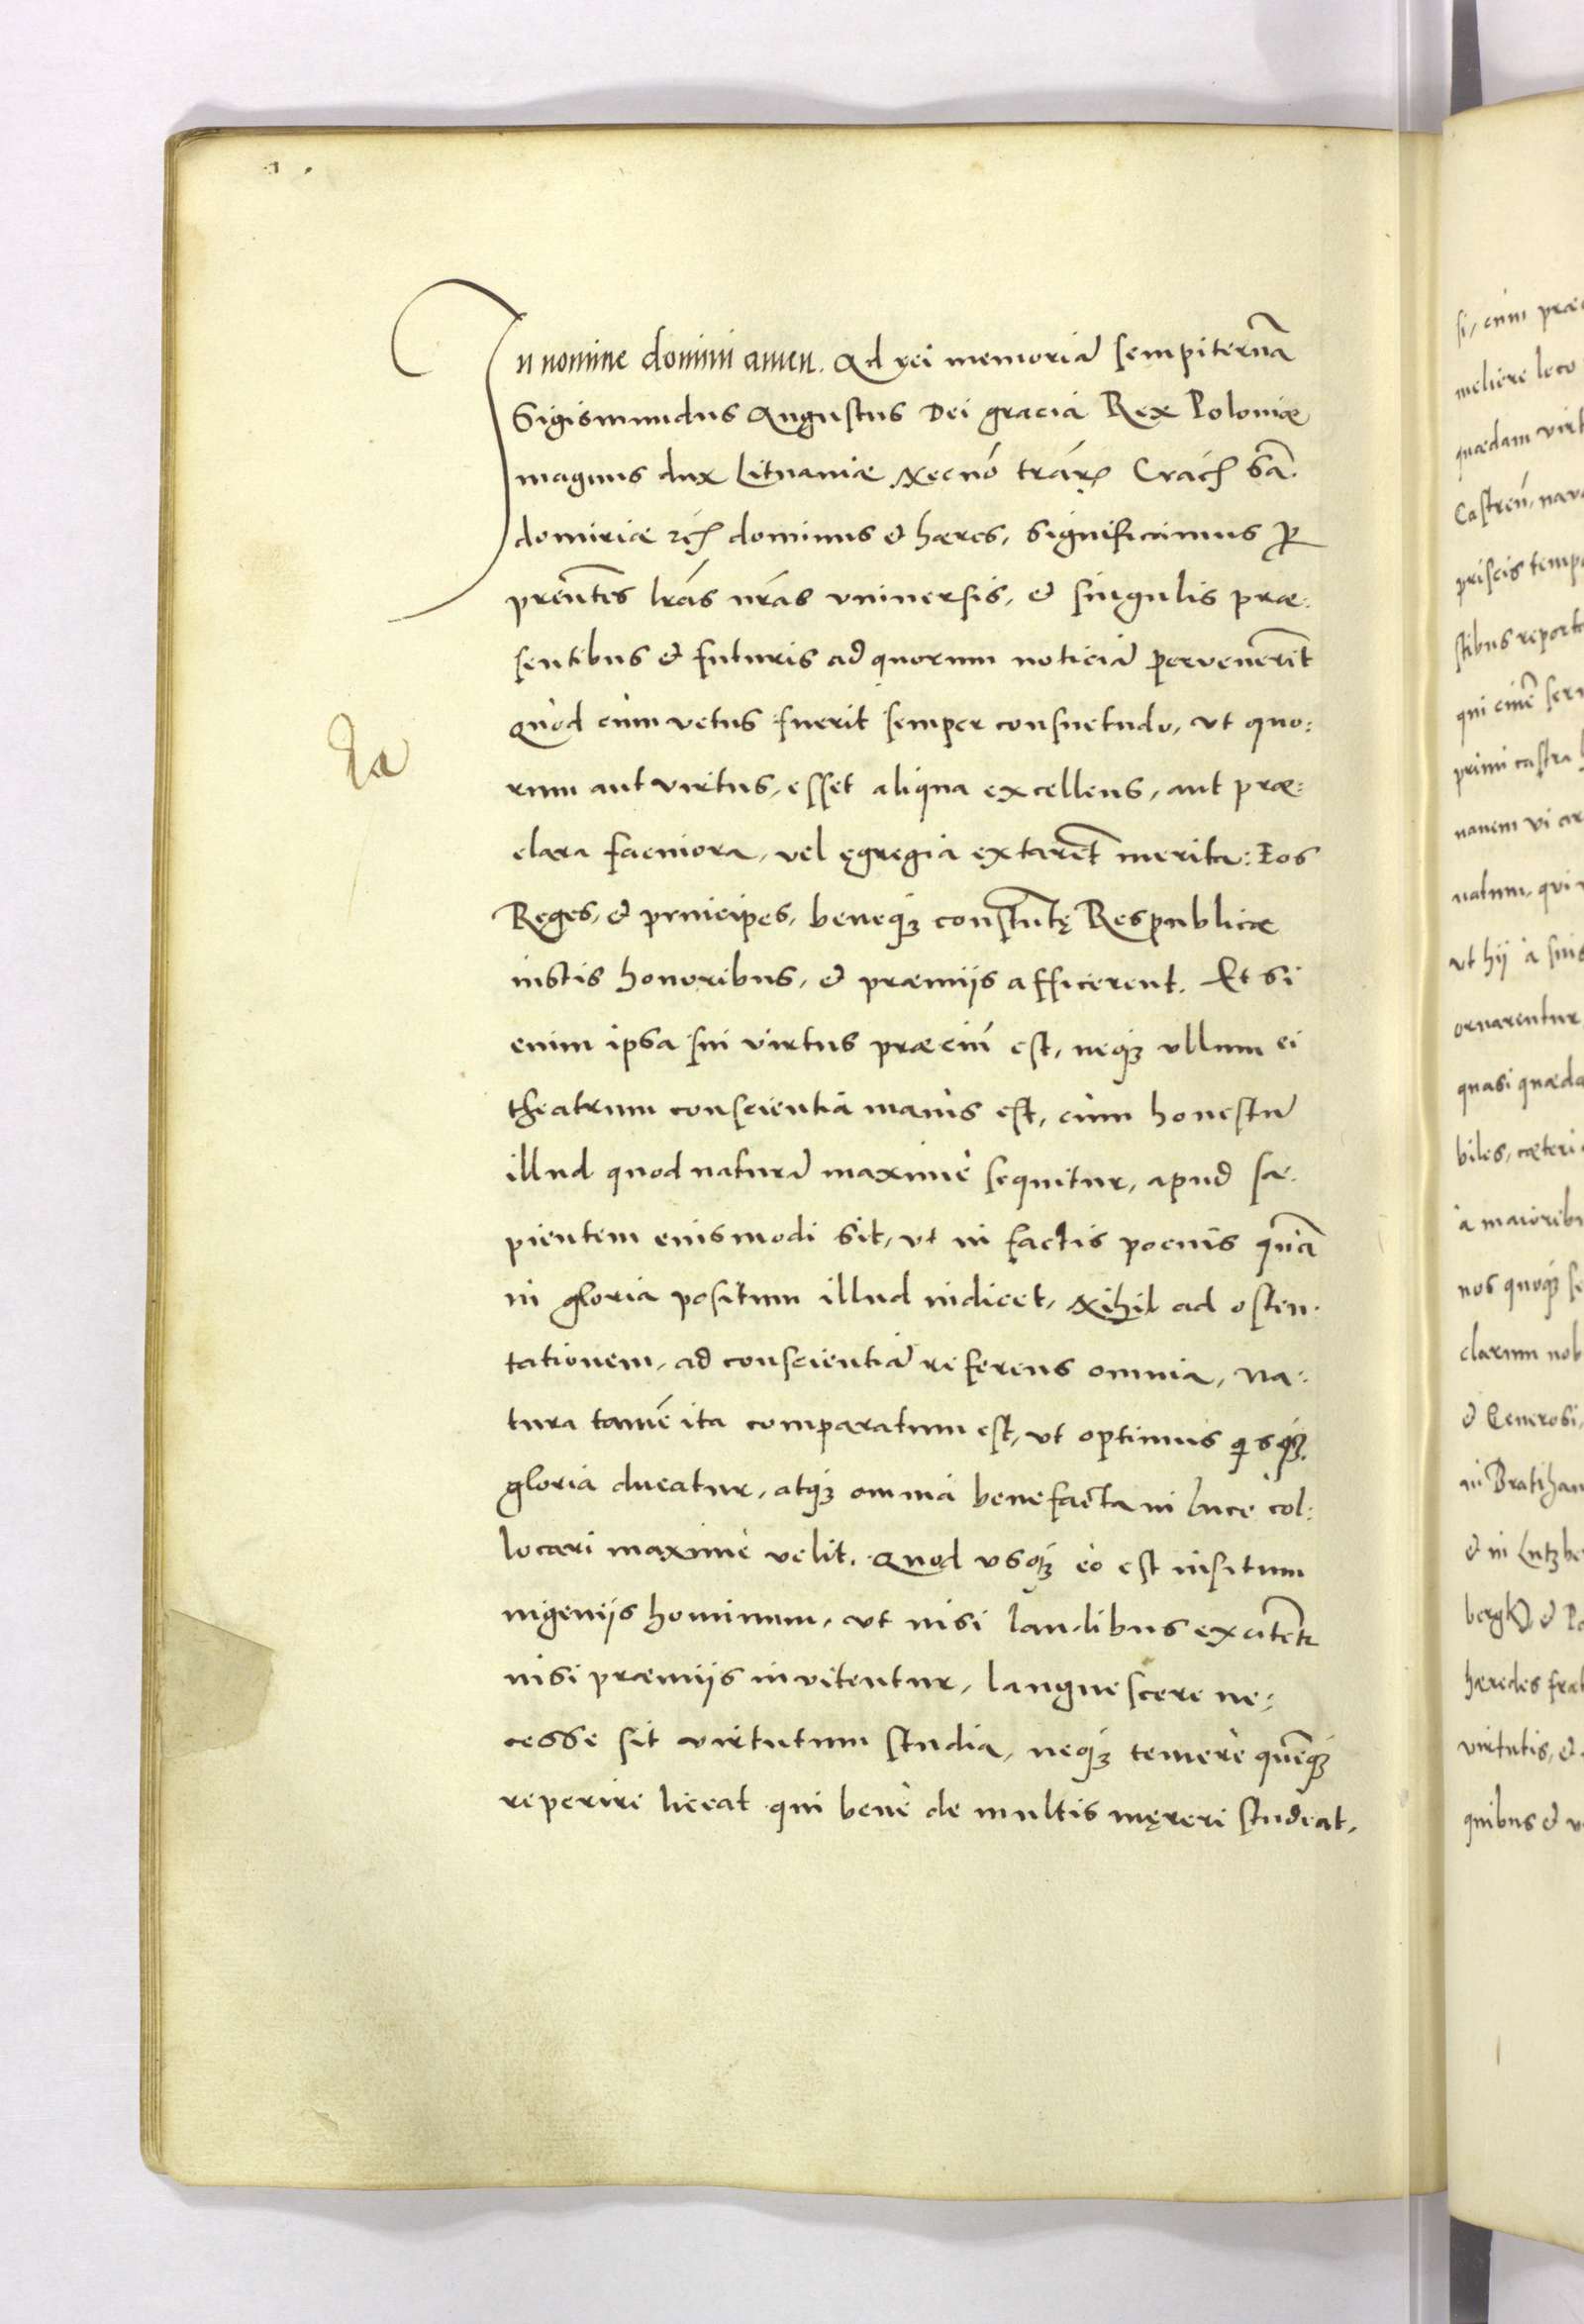 In nomine domini amen. Ad rei memoriā sempiternā
Sigismundus Augustus Dei gracia Rex Poloniæ
magnus dux Lituaniæ Necnō trār. Crācꝭ Sā-
domiriæ dominus & hæres, Significamus ꝑ
prēntes lrās nrās vniuersis, & singulis præ:
sentibus & futuris ad quorum noticiā pervenerīt
Quod cum vetus fuerit semper consuetudo, vt quo:
rum aut virtus, esset aliqua excellens, aut præ:
clara facniora, vel ęgregia extarēt merita: Eos
Reges, & principes, beneqȝ constitutę Respublicæ
iustis honoribus, & præmijs afficerent. Et si
enim ipsa sui virtus præciū est, neqȝ vllum ei
theatrum conscientia maius est, cum honestū
illud quod naturā maxime sequitur, apud sa-
pientem eiusmodi sit, vt in factis pocius quā
in gloria positum illud iudicet, Nihil ad osten-
tationem, ad conscientiā referens omnia, Na:
tura tamē ita comparatum est, vt optimus qisqȝ
gloria ducatur, atqȝ omnia benefacta in luce col:
locari maxime velit. Quod vsqȝ eo est insitum
ingenijs hominum, vt nisi laudibus excitētr
nisi præmijs invitentur, languescere ne:
cesse sit virtutum studia, neqȝ temere quēqȝ
reperire liceat qui bene de multis męreri studeat,
si, cum præ
meliore loco
quædam virt
Castreń, nava
priscis temp
stibus report
primi castra
navem vi ar
natum, qui
vt hij a suis
ornarentur
quasi quæda
biles, cæteri
a maiorib
nos quoqȝ se
clarum nob
& Generosi,
in Brathan
& in Lutzbe
bergk, & Pa
hæredes frat
virtutis, &
quibus & v